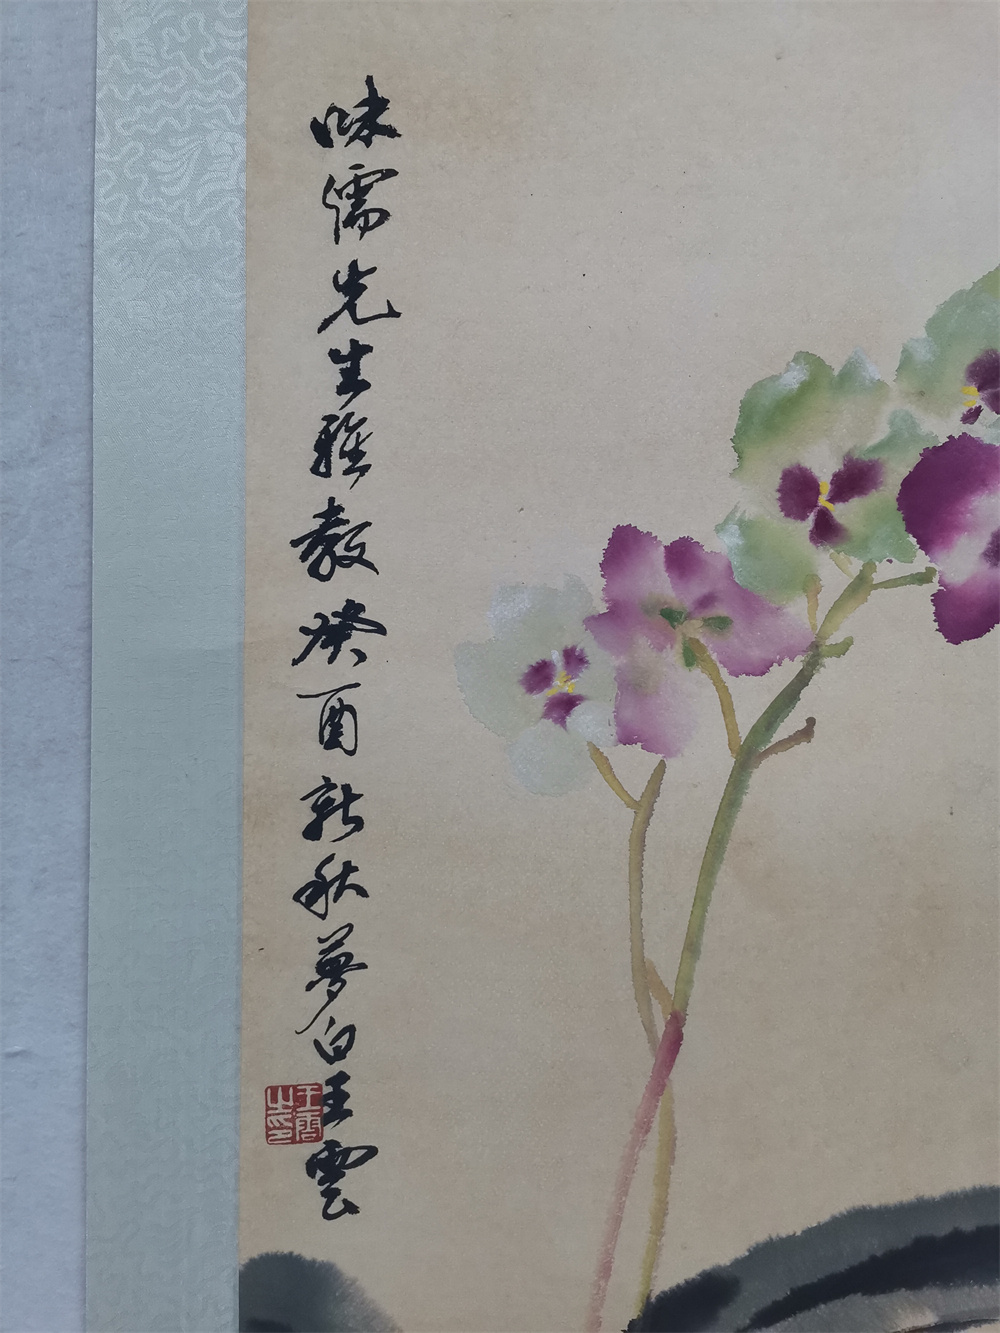 味儒先生雅教癸酉新秋夢白王雲
王雲之印